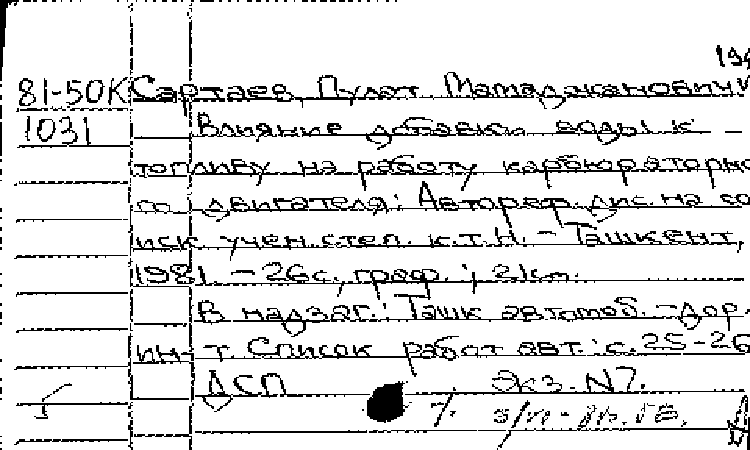 194
81-50К Сартаев, Пулат Мамаджанович
1031 Влияние добавки воды к
топливу на работу карбюраторно
го двигателя: Автореф. дис. на со
иск. учен. степ. к.т.н. - Ташкент,
1981. - 26 с. граф.; 21 см.
В надзаг.: Ташк. автомоб.-дор.
ин-т. Список работ авт.: с. 25-26
ДСП Экз. N7.